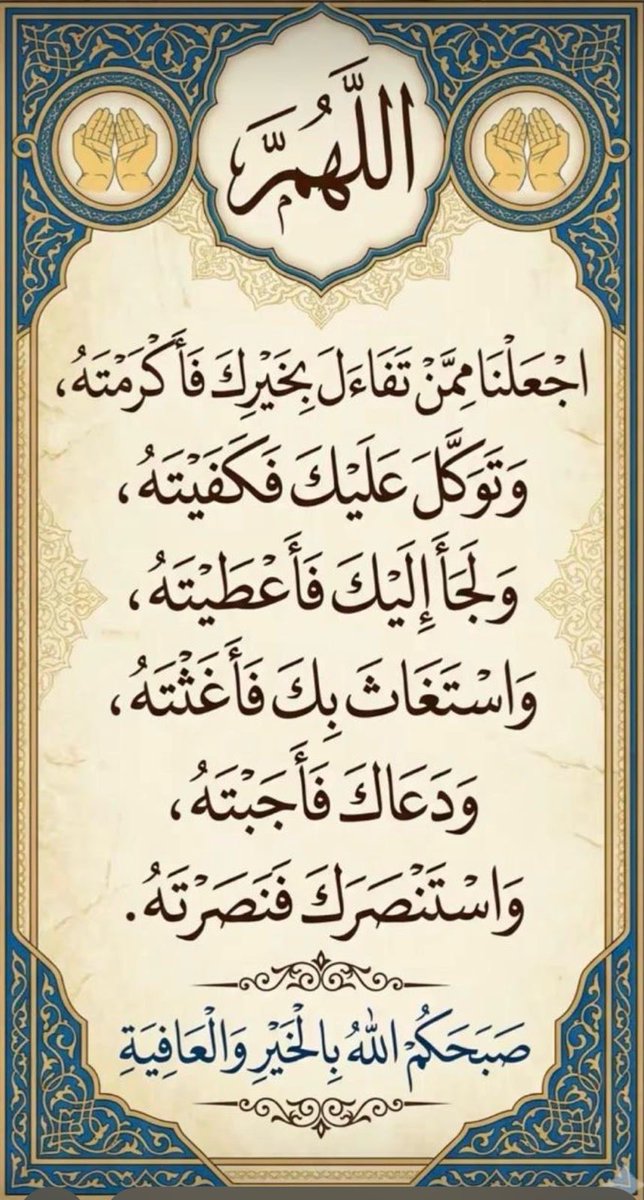 اللَّهُمَّ
اجْعَلْنَا مِمَّنْ تَفَاءَلَ بِخَيْرِكَ فَأَكْرَمْتَهُ،
وَتَوَكَّلَ عَلَيْكَ فَكَفَيْتَهُ،
وَلَجَأَ إِلَيْكَ فَأَعْطَيْتَهُ،
وَاسْتَغَاثَ بِكَ فَأَغَثْتَهُ،
وَدَعَاكَ فَأَجَبْتَهُ،
وَاسْتَنْصَرَكَ فَنَصَرْتَهُ.
صَبَحَكُمْ اللهُ بِالْخَيْرِ وَالْعَافِيَةِ